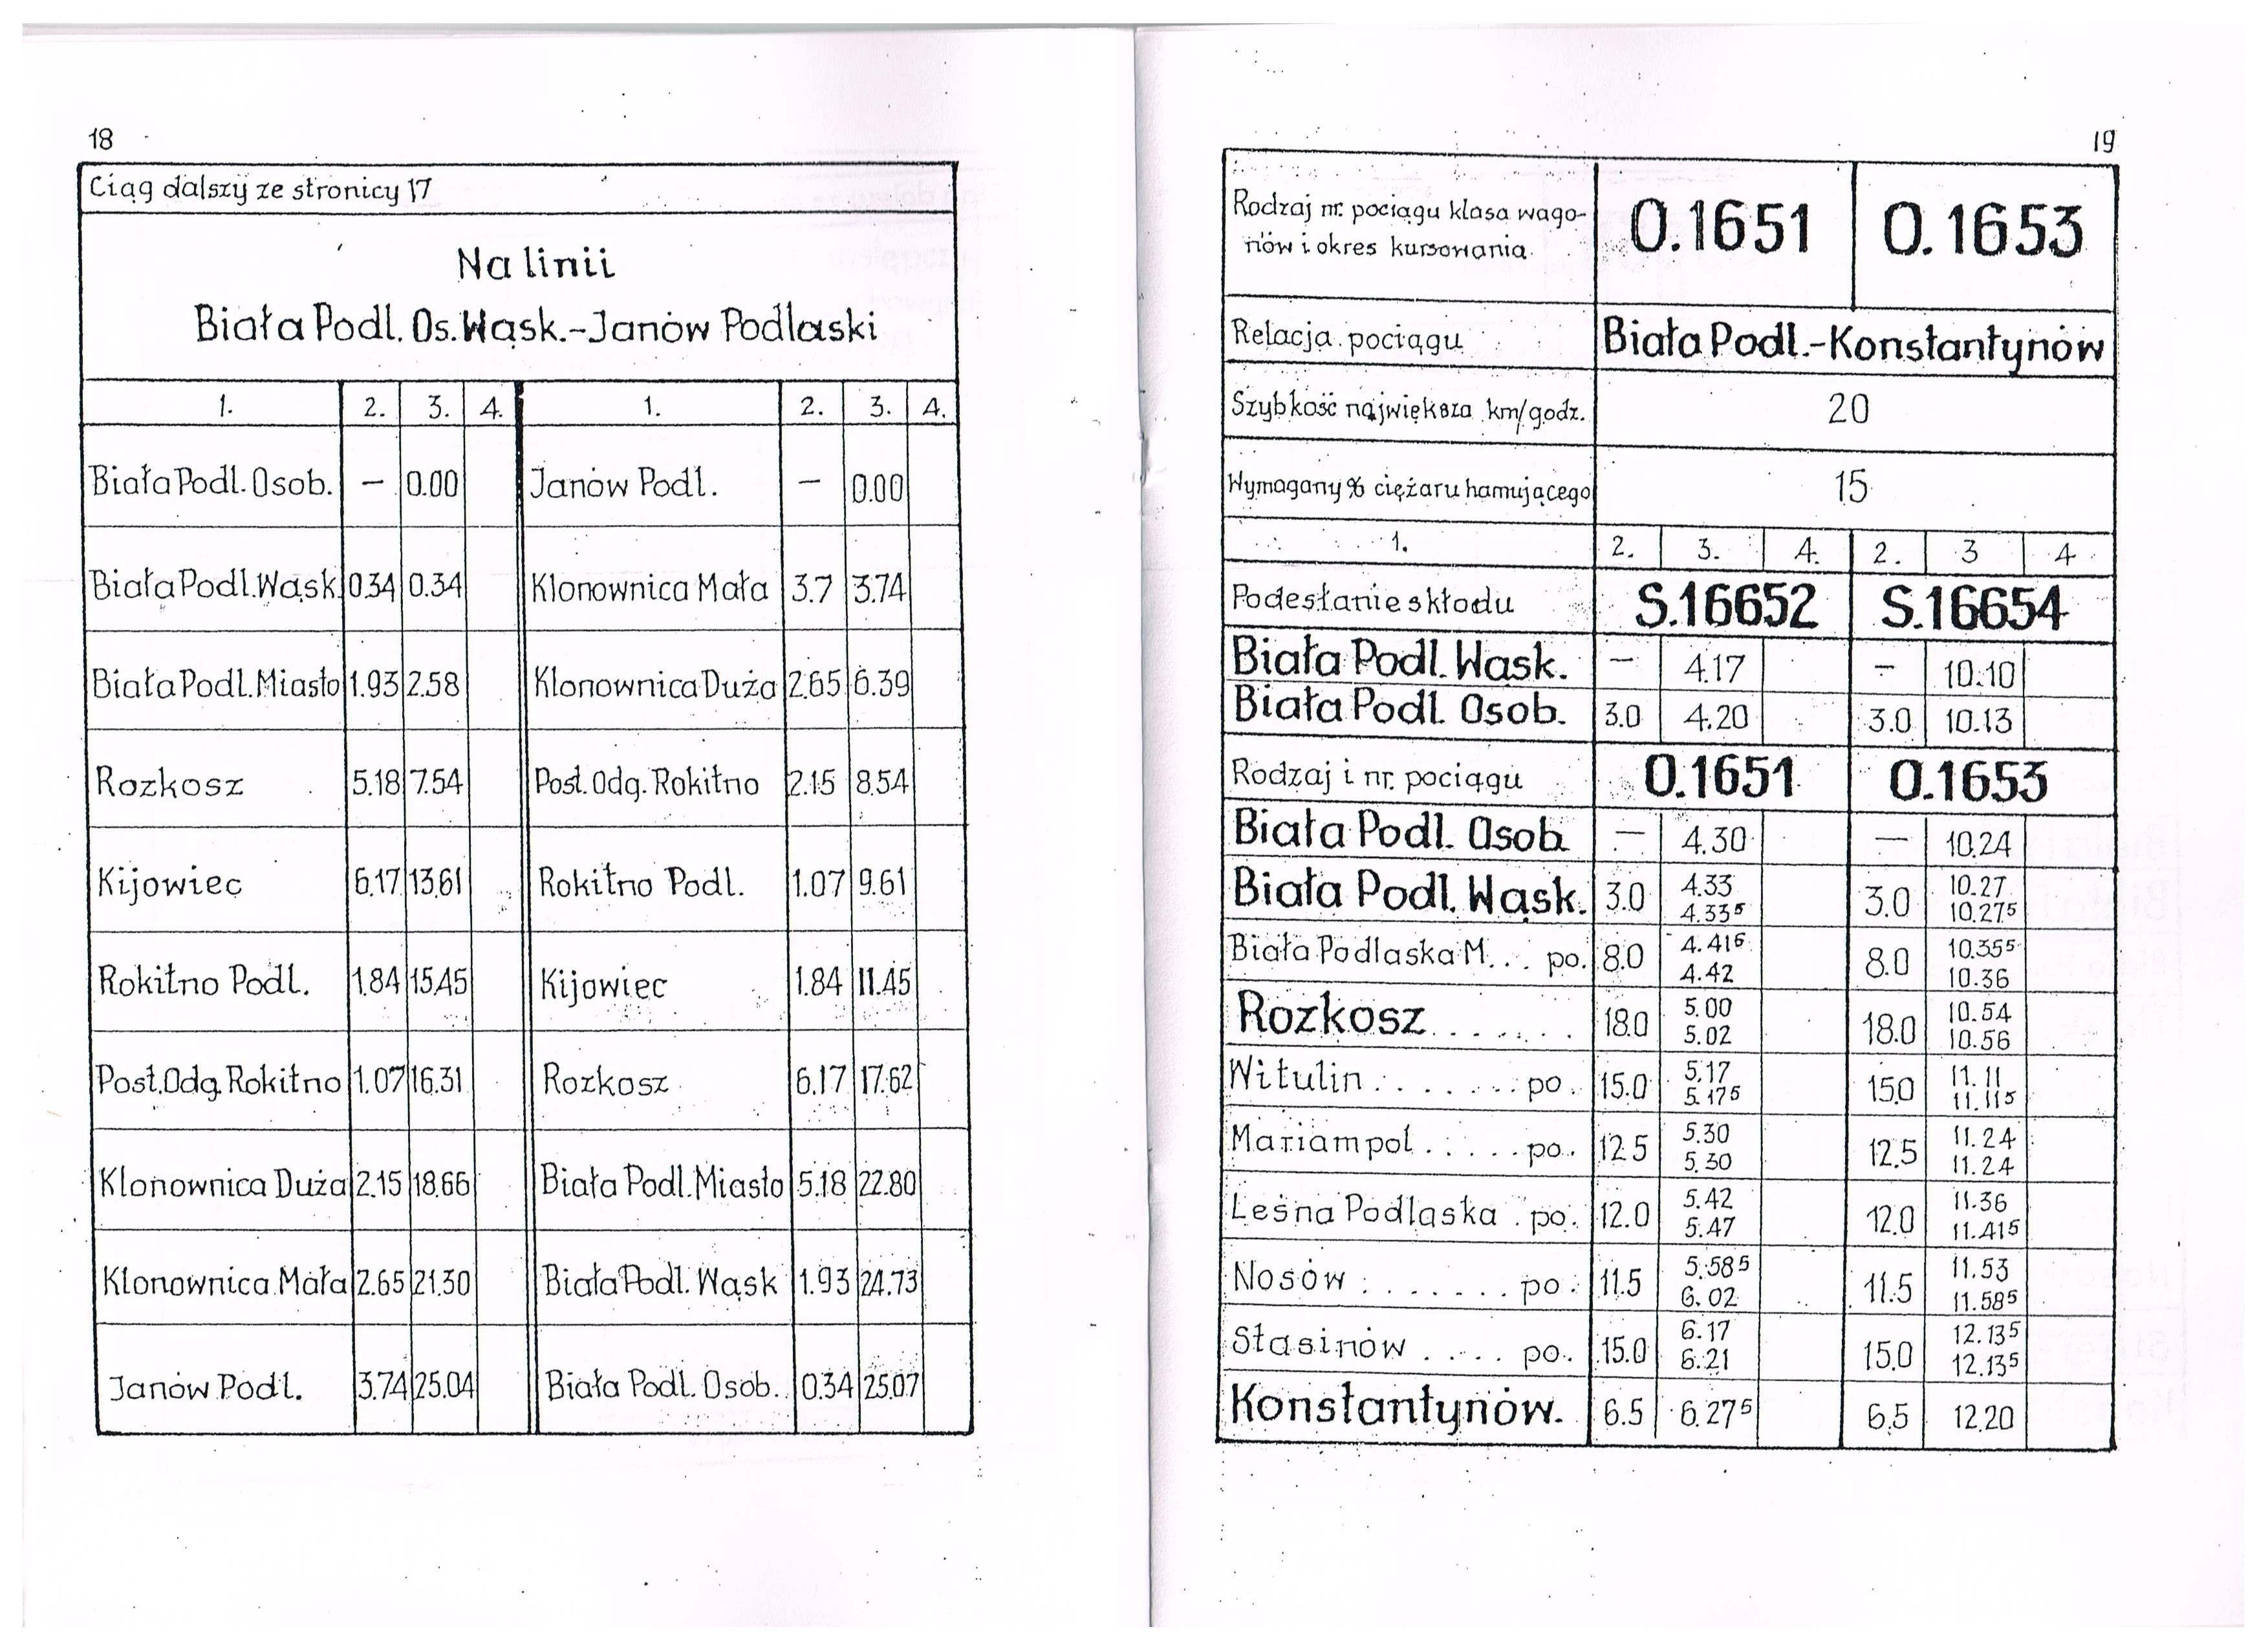 18
Ciąg dalszy ze stronicy 17
Na linii
Biała Podl. Os. Wąsk.-Janów Podlaski
1. 2. 3. 4. 1. 2. 3. 4.
Biała Podl. Osob. – 0.00 Janów Podl. – 0.00
Biała Podl. Wąsk. 0.34 0.34 Klonownica Mała 3.7 3.74
Biała Podl. Miasto 1.93 2.58 Klonownica Duża 2.65 6.39
Rozkosz 5.18 7.54 Post. Odg. Rokitno 2.15 8.54
Kijowiec 6.17 13.61 Rokitno Podl. 1.07 9.61
Rokitno Podl. 1.84 15.45 Kijowiec 1.84 11.45
Post. Odg. Rokitno 1.07 16.31 Rozkosz 6.17 17.62
Klonownica Duża 2.15 18.66 Biała Podl. Miasto 5.18 22.80
Klonownica Mała 2.65 21.30 Biała Podl. Wąsk 1.93 24.73
Janów Podl. 3.74 25.04 Biała Podl. Osob. 0.34 25.07
19
Rodzaj nr. pociągu klasa wago-
nów i okres kursowania 0.1651 0.1653
Relacja pociągu Biała Podl.-Konstantynów
Szybkość największa km/godz. 20
Wymagany % ciężaru hamującego 15
1. 2. 3. 4. 2. 3 4
Podesłanie składu S.16652 S.16654
Biała Podl. Wąsk. – 4.17 – 10.10
Biała Podl. Osob. 3.0 4.20 3.0 10.13
Rodzaj i nr. pociągu 0.1651 0.1653
Biała Podl. Osob – 4.30 – 10.24
Biała Podl. Wąsk. 3.0 4.33 3.0 10.27
4.33⁵ 10.27⁵
Biała Podlaska M... po. 8.0 4.41⁶ 8.0 10.35⁵
4.42 10.36
Rozkosz....... 18.0 5.00 18.0 10.54
5.02 10.56
Witulin....... po. 15.0 5.17 15.0 11.11
5.17⁵ 11.11⁵
Mariampol..... po. 12.5 5.30 12.5 11.24
5.30 11.24
Leśna Podlaska . po. 12.0 5.42 12.0 11.36
5.47 11.41⁵
Nosów....... po. 11.5 5.58⁵ 11.5 11.53
6.02 11.58⁵
Stasinów .... po. 15.0 6.17 15.0 12.13⁵
6.21 12.13⁵
Konstantynów. 6.5 6.27⁵ 6.5 12.20